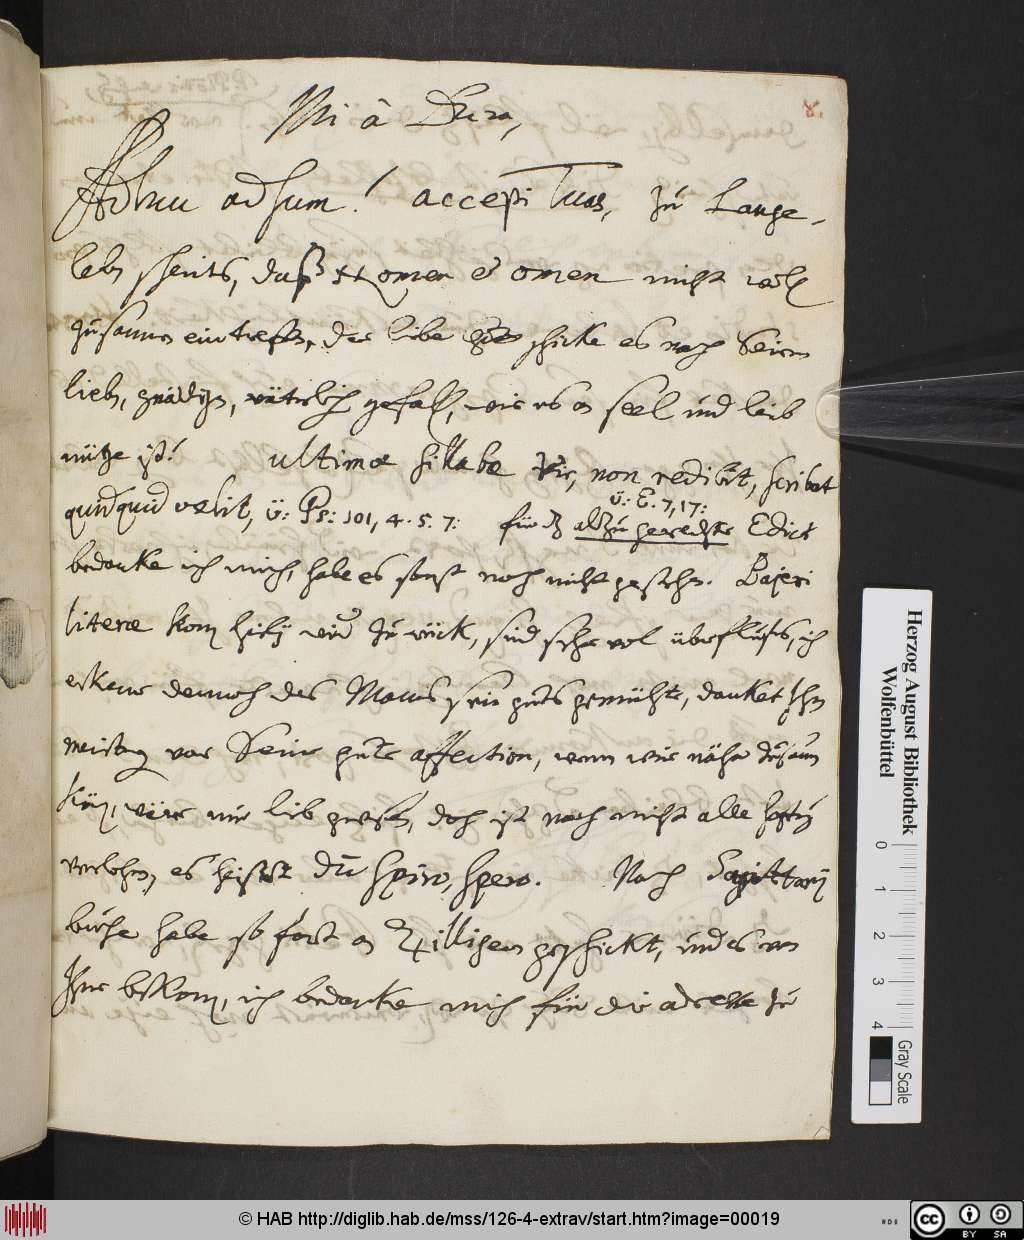 8.
Mi à Dura,
Adhuc adsum! accepi Tuas, zu Lange-
lebn scheints, daß nomen et omen nicht wol
zusamen eintreffn, der libe Gott schicke es nach Seinem
liebn, gnädign, väterlich gefalln, wie es an seel und leib
nütze ist! ultimæ sillabæ Vir, non redibit, scribat
quidquid velit, v: Ps: 101, 4. 5. 7: für dz alzu gerechte Edict
v: E. 7, 17:
bedanke ich mich, habe es sonst noch nicht gesehn. Bajeri
literæ kom hibej wider zu rück, sind sehr vol überflusses, ich
erkenne dennoch des Mannes sein gutes gemühte, danket Ihm
meinetweg vor Seine gute affection, wenn wir näher zusamm
käm, wäre mir lieb gewesn, doch ist noch nicht alle hofnung
verlohrn, es heisset Dum spiro, spero. Nach Sagittarij
buche habe so fort an Zilligern geschickt, und es von
Ihme bekom, ich bedanke mich für die adresse zu
Herzog August Bibliothek
Wolfenbüttel
0
1
2
3
4
Gray Scale
© HAB http://diglib.hab.de/mss/126-4-extrav/start.htm?image=00019
cc BY SA